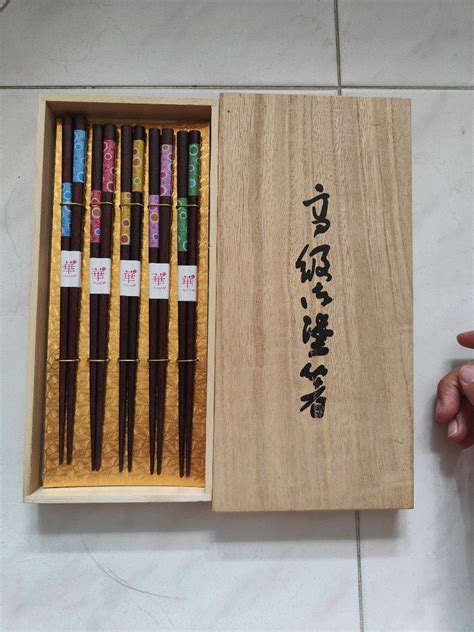 華
華
華
華
華
高級御塗箸